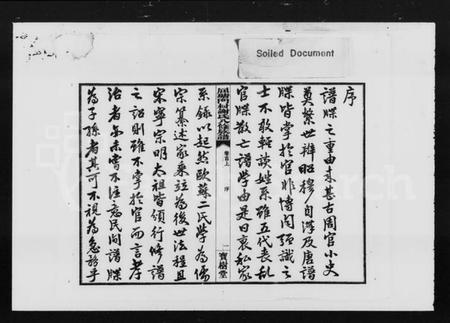 Soiled Document
序
譜牒之重由来甚古周官小史
奠繫世辨昭穆自漢及唐譜
牒皆掌於官非博聞強識之
士不敢輕談姓系雖五代喪亂
官牒散亡譜學由是日衰私家
卷首上 序 一 寳樹堂
系錄以起然歐蘇二氏學為儒
宗纂述家乘立為後世法程且
宋寧宗明太祖皆頒行修譜
之詔則雖不掌於官而言孝
治者亦未嘗不注意民間譜牒
為子孫者其可不視為急務乎